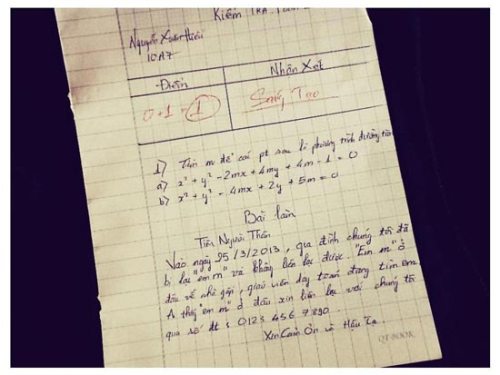 Kiểm Tra Toán
Nguyễn Xuân Hiếu
10A7
Điểm
Nhận Xét
0+1 = 1
Sáng Tạo
1) Tìm m để các pt sau là phương trình đường tròn
a) x² + y² - 2mx + 4my + 4m - 1 = 0
b) x² + y² - 4mx + 2y + 5m = 0
Bài làm
Tìm Người Thân
Vào ngày 25/3/2013, gia đình chúng tôi đã
bị lạc "em m" và không liên lạc được. "Em m" ở
đâu về nhé gấp, giáo viên dạy toán đang tìm em.
Ai thấy "em m" ở đâu xin liên lạc với chúng tôi
qua số đt : 0123 456 7890.
Xin Cảm Ơn và Hậu Tạ